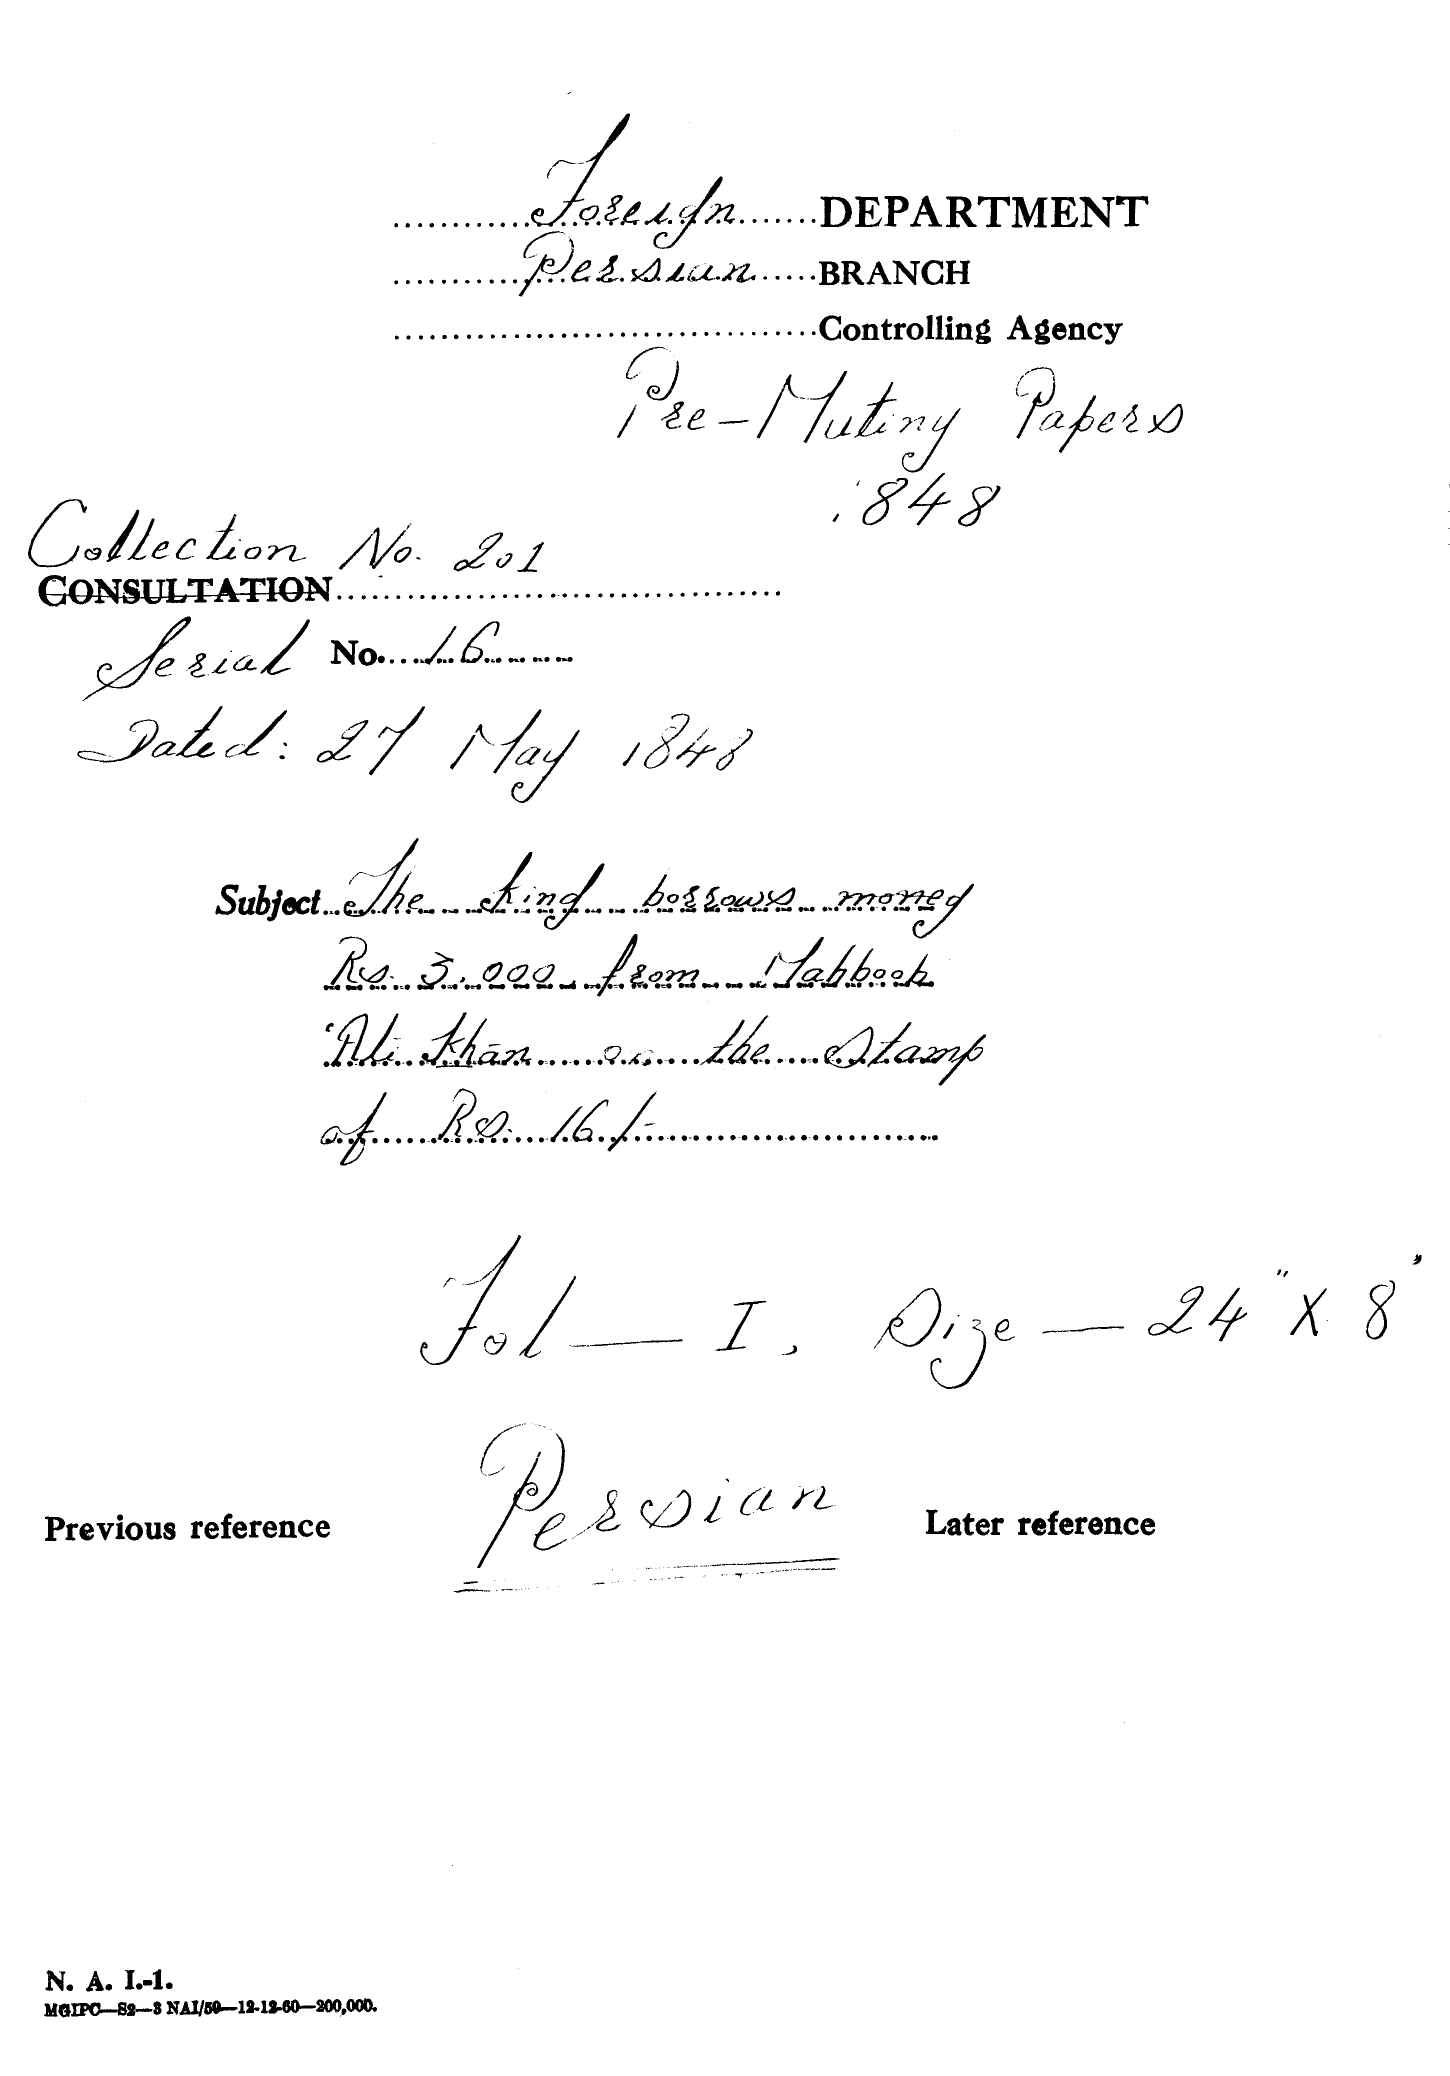 Foreign DEPARTMENT
Persian BRANCH
Controlling Agency
Pre-Mutiny Papers
1848
Collection No. 201
CONSULTATION
Serial No. 16
Dated: 27 May 1848
Subject The king borrows money
Rs. 3,000 from Mahboob
'Ali Khān on the Stamp
of Rs. 16/-
Fol — I, Size — 24" X 8"
Persian
Previous reference Later reference
N. A. I.-1.
MGIPC—S2—3 NAI/59—12-12-60—200,000.